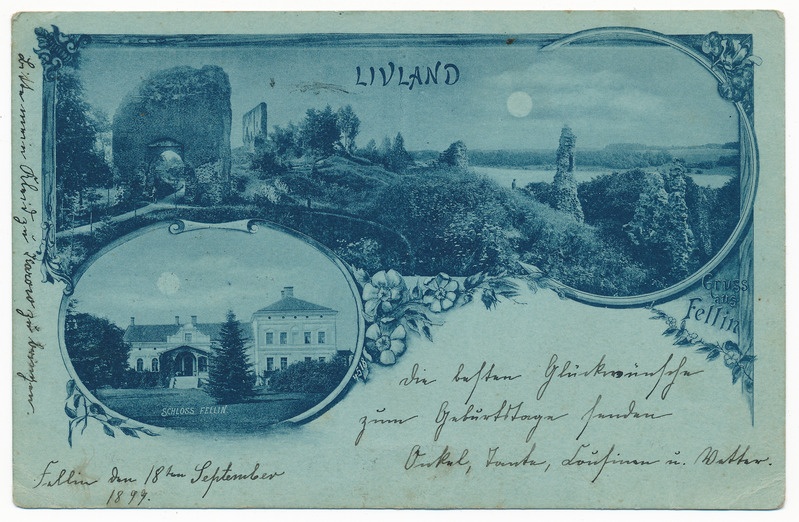 LIVLAND
Gruss
aus
Fellin
SCHLOSS FELLIN
Die besten Glückwünsche
zum Geburtstage senden
Onkel, Tante, Cousinen u. Vetter.
Fellin den 18ten September
1899.
Bitte mein Kleid zu